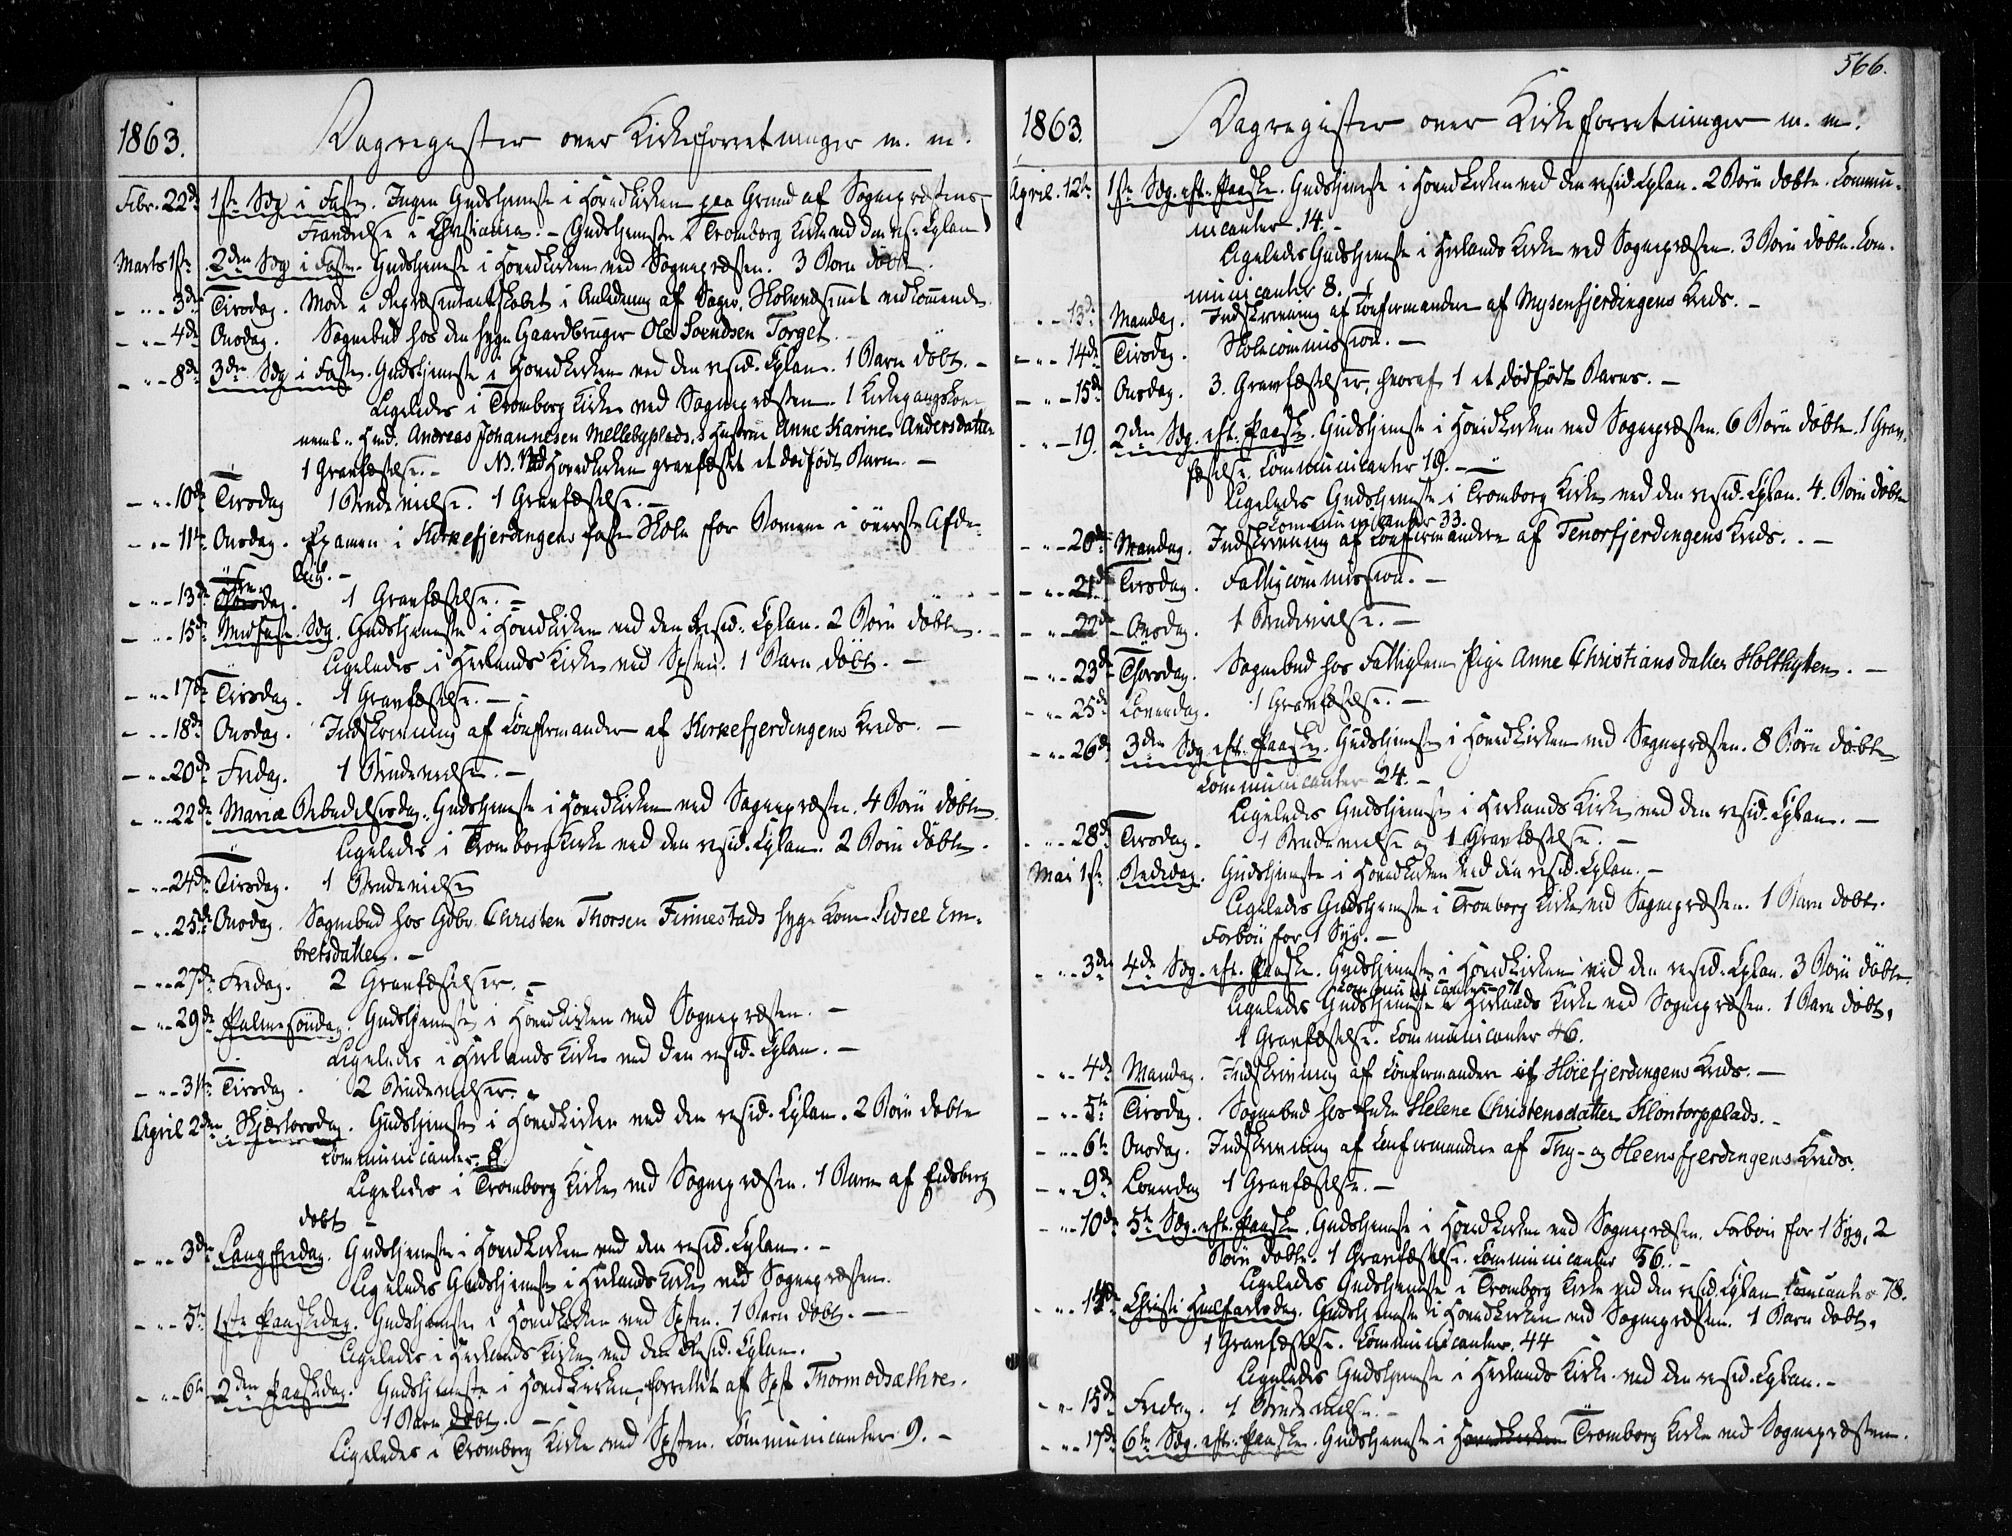 1863.
Dagregister over Kirkeforretninger m. m.
Febr. 22de 1ste Sdg i Faste. Ingen Gudstjeneste i Hovedkirken paa Grund af Sognepræstens
Fraværelse i Christiania. – Gudstjeneste i Tromborg Kirke ved den res. Cplan
Marts 1ste 2den Sdg i Faste. Gudstjeneste i Hovedkirken ved Sognepræsten. 3 Børn døbte.
– „ – 3de Tirsdag. Møde i Repræsentantskabet i Anledning af Sager, Skolevæsenet vedkommende.
– „ – 4de Onsdag. Sognebud hos den syge Gaardbruger Ole Svendsen Torget.
– „ – 8de 3die Sdg i Faste. Gudstjeneste i Hovedkirken ved den resid. Cplan. 1 Barn døbt. –
Ligeledes i Tromborg Kirke ved Sognepræsten. 1 Kirkegangskone
nemt. Hmd. Andreas Johannesen Mellebyplads. s Hustrue Anne Karine Andersdatter
1 Gravfæstelse. – NB. Ved Hovedkirken gravfæstet et dødfødt Barn. –
– „ – 10de Tirsdag 1 Brudevielse. 1 Gravfæstelse. –
– „ – 11te Onsdag. Examen i Kirkefjerdingens faste Skole for Børnene i øverste Afde-
ling. –
– „ – 13de Fredag. 1 Gravfæstelse. –
– „ – 15de Midfaste Sdg. Gudstjeneste i Hovedkirken ved den resid. Cplan. 2 Børn døbte. –
Ligeledes i Herlands Kirke ved Spsten. 1 Barn døbt. –
– „ – 17de Tirsdag. 1 Gravfæstelse. –
– „ – 18de Onsdag. Indskrivning af Confirmander af Kirkefjerdingens Kreds. –
– „ – 20de Fredag. 1 Brudevielse. –
– „ – 22de Mariæ Bebudelsesdag. Gudstjeneste i Hovedkirken ved Sognepræsten. 4 Børn døbte.
Ligeledes i Tromborg Kirke ved den resid. Cplan. 2 Børn døbte.
– „ – 24de Tirsdag. 1 Brudevielse
– „ – 25de Onsdag. Sognebud hos Gdbr. Christen Thorsen Finnestads syge Kone Sidsel Em-
bretsdatter. –
– „ – 27de Fredag. 2 Gravfæstelser. –
– „ – 29de Palmesøndag. Gudstjeneste i Hovedkirken ved Sognepræsten. –
Ligeledes i Herlands Kirke ved den resid. Cplan. –
– „ – 31te Tirsdag. 2 Brudevielser. –
April 2den Skjærtorsdag. Gudstjeneste i Hovedkirken ved den resid. Cplan. 2 Børn døbte
Communicanter. 8.
Ligeledes i Tromborg Kirke ved Sognepræsten. 1 Barn af Eidsberg
døbt –
– „ – 3die Langfredag. Gudstjeneste i Hovedkirken ved den resid. Cplan. –
Ligeledes Gudstjeneste i Herlands Kirke ved Sognepræsten.
– „ – 5te 1ste Paaskedag. Gudstjeneste i Hovedkirken ved Spsten. 1 Barn døbt. –
Ligeledes i Herlands Kirke ved den Resid. Cplan.
– „ – 6te 2den Paaskedag. Gudstjeneste i Hovedkirken, forrettet af Spst Thormodsæthre.
1 Barn døbt. –
Ligeledes i Tromborg Kirke ved Spsten. Communicanter 9. –
566.
1863.
Dagregister over Kirkeforretninger m. m.
April. 12te 1ste Sdg. eft. Paaske. Gudstjeneste i Hovedkirken ved den resid. Cplan. 2 Børn døbte. Commu-
nicanter. 14. –
Ligeledes Gudstjeneste i Herlands Kirke ved Sognepræsten. 3 Børn døbte. Com-
municanter 8. –
– „ – 13de Mandag. Indskrivning af Confirmander af Mysenfjerdingens Kreds. –
– „ – 14de Tirsdag. Skolecommission. –
– „ – 15de Onsdag. 3. Gravfæstelser, hvoraf 1 et dødfødt Barns. –
– „ – 19. 2den Sdg. eft. Paaske. Gudstjeneste i Hovedkirken ved Sognepræsten. 6 Børn døbte. 1 Grav-
fæstelse. Communicanter 19. –
Ligeledes Gudstjeneste i Tromborg Kirke ved den resid. Cplan. 4. Børn døbte
Communicanter 33.
– „ – 20de Mandag. Indskrivning af Confirmander af Tenorfjerdingens Kreds. . –
– „ – 21de Tirsdag. Fattigcommission. –
– „ – 22de Onsdag. 1 Brudevielse. –
– „ – 23de Thorsdag. Sognebud hos Fattiglem Pige Anne Christiansdatter Holthytten. –
– „ – 25de Løverdag. 1 Gravfæstelse. –
– „ – 26de 3die Sdg. eft. Paaske. Gudstjeneste i Hovedkirken ved Sognepræsten. 8 Børn døbte
Communicanter 24. –
Ligeledes Gudstjeneste i Herlands Kirke ved den resid. Cplan. –
– „ – 28de Tirsdag. 1 Brudevielse og 1 Gravfæstelse. –
Mai 1ste Bededag. Gudstjeneste i Hovedkirken ved den resid. Cplan. –
Ligeledes Gudstjeneste i Tromborg Kirke ved Sognepræsten. 1 Barn døbt.
Forbøn for 1 Syg. –
– „ – 3die 4de Sdg. eft. Paaske. Gudstjeneste i Hovedkirken ved den resid. Cplan. 3 Børn døbte.
Communicanter 71
Ligeledes Gudstjeneste i Herlands Kirke ved Sognepræsten. 1 Barn døbt.
1 Gravfæstelse. Communicanter 46.
– „ – 4de Mandag. Indskrivning af Confirmander af Høiefjerdingens Kreds. –
– „ – 5te Tirsdag. Sognebud hos Enke Helene Christensdatter Klontorpplads. –
– „ – 6te Onsdag. Indskrivning af Confirmander af Thy- og Heensfjerdingens Kreds.
– „ – 9de Løverdag 1 Gravfæstelse. –
– „ – 10de 5te Sdg. eft. Paaske. Gudstjeneste i Hovedkirken ved Sognepræsten. Forbøn for 1 Syg. 2
Børn døbte. 1 Gravfæstelse. Communicanter 56. –
Ligeledes Gudstjeneste i Tromborg Kirke ved den resid. Cplan Comcanter 78.
– „ – 14de Christi Himmelfartsdag. Gudstjeneste i Hovedkirken ved Sognepræsten. 1 Barn døbt.
1 Gravfæstelse. Communicanter. 44
Ligeledes Gudstjeneste i Herlands Kirke ved den resid. Cplan. –
– „ – 15de Fredag. 1 Brudevielse. –
– „ – 17de 6te Sdg. eft. Paaske. Gudstjeneste i Hovedkirken Tromborg Kirke ved Sognepræsten.